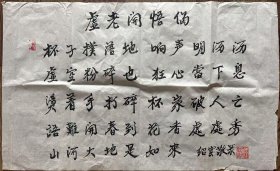 虛老開悟偈
杯子撲落地响声明沥沥
虛空粉碎也狂心當下息
燙着手打碎杯家破人亡
語難開春到花香處處秀
山河大地是如來
紹雲敬書